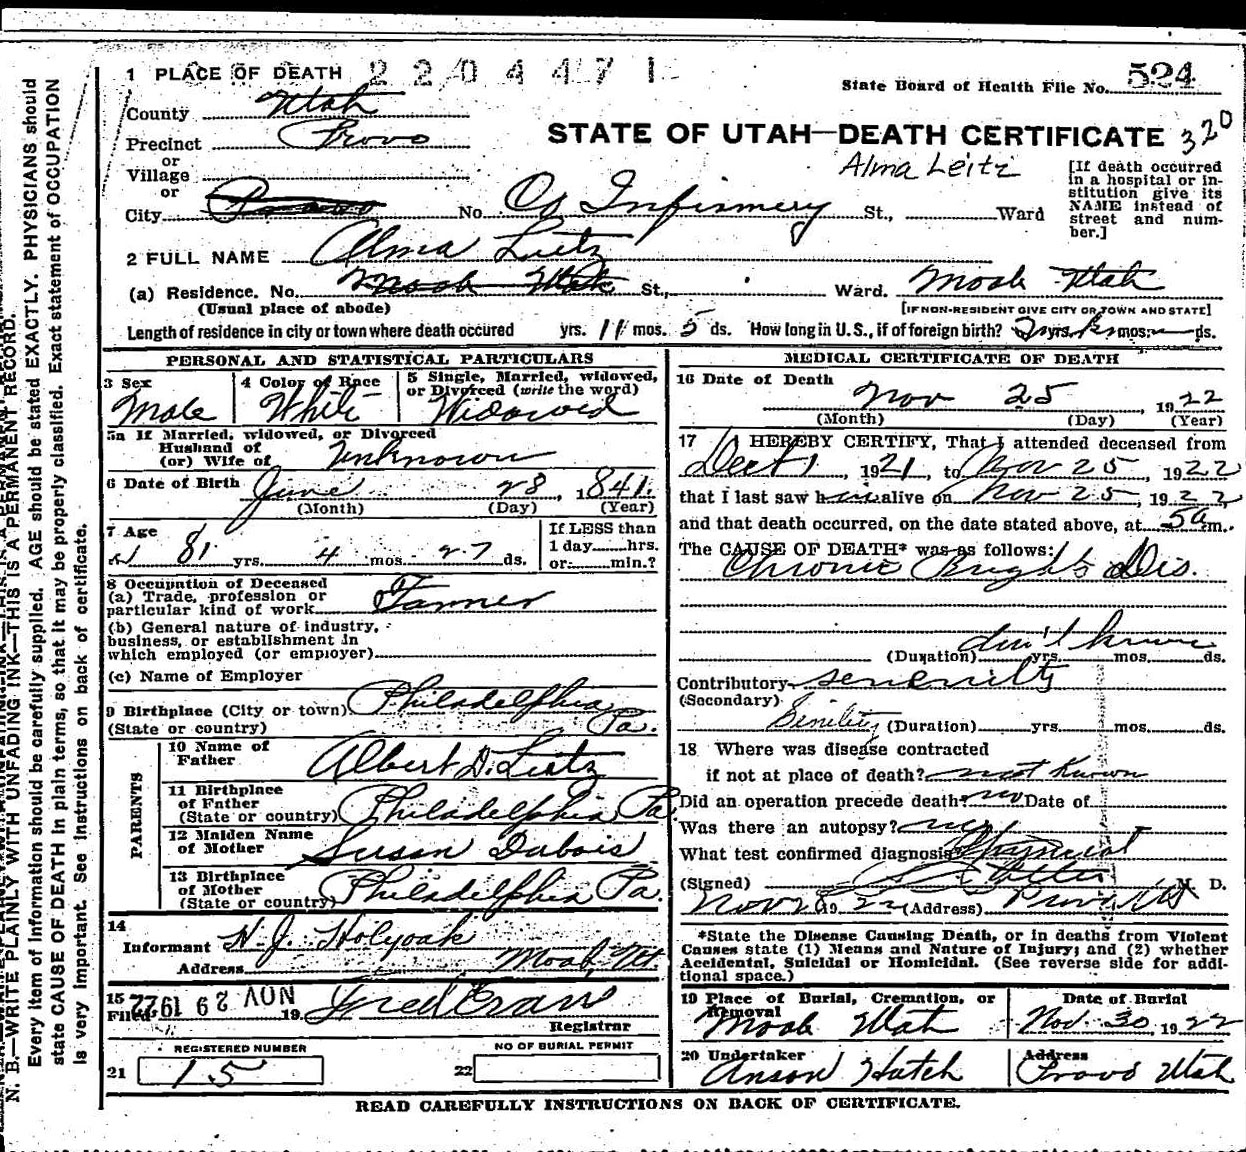 1 PLACE OF DEATH 2204471
State Board of Health File No. 524
County Utah
Precinct Provo
STATE OF UTAH—DEATH CERTIFICATE 320
or
Village
Alma Leitz
[If death occurred in a hospital or institution give its NAME instead of street and number.]
or
City Provo No. Co Infirmery St., Ward
2 FULL NAME Alma Lutz
(a) Residence. No. Moab Utah St., Ward. Moab Utah
(Usual place of abode) [IF NON-RESIDENT GIVE CITY OR TOWN AND STATE]
Length of residence in city or town where death occured yrs. 11 mos. 5 ds. How long in U.S., if of foreign birth? yrs. mos. ds.
PERSONAL AND STATISTICAL PARTICULARS
3 Sex Male
4 Color of Race White
5 Single, Married, widowed, or Divorced (write the word) Widowed
5a If Married, widowed, or Divorced
Husband of
(or) Wife of Unknown
6 Date of Birth June 28, 1841.
(Month) (Day) (Year)
7 Age 81 yrs. 4 mos. 27 ds.
If LESS than
1 day hrs.
or min.?
8 Occupation of Deceased
(a) Trade, profession or
particular kind of work Farmer
(b) General nature of industry,
business, or establishment in
which employed (or employer)
(c) Name of Employer
9 Birthplace (City or town) Philadelphia
(State or country) Pa.
PARENTS
10 Name of
Father Albert D. Lutz
11 Birthplace
of Father
(State or country) Philadelphia Pa.
12 Maiden Name
of Mother Susan Dubois
13 Birthplace
of Mother
(State or country) Philadelphia Pa.
14
Informant H. J. Holyoak
Address Moab, Ut.
15
Filed NOV 29 1922 19
Registrar
REGISTERED NUMBER
21 15
NO OF BURIAL PERMIT
22
MEDICAL CERTIFICATE OF DEATH
16 Date of Death
Nov 25, 1922
(Month) (Day) (Year)
17 I HEREBY CERTIFY, That I attended deceased from
Dect 1, 1921, to Nov 25, 1922
that I last saw him alive on Nov 25, 1922,
and that death occurred, on the date stated above, at 5a m.
The CAUSE OF DEATH* was as follows:
Chronic Brights Dis.
don't know
(Duration) yrs. mos. ds.
Contributory senenilty
(Secondary)
Sinility (Duration) yrs. mos. ds.
18 Where was disease contracted
if not at place of death? not known
Did an operation precede death? no Date of
Was there an autopsy? no
What test confirmed diagnosis
(Signed) M. D.
Nov 28 1922 (Address) Provo Ut
*State the Disease Causing Death, or in deaths from Violent
Causes state (1) Means and Nature of Injury; and (2) whether
Accidental, Suicidal or Homicidal. (See reverse side for additional space.)
19 Place of Burial, Cremation, or
Removal
Moab Utah
Date of Burial
Nov. 30, 1922
20 Undertaker
Anson Hatch
Address
Provo Utah
READ CAREFULLY INSTRUCTIONS ON BACK OF CERTIFICATE.
N. B.—WRITE PLAINLY WITH UNFADING INK—THIS IS A PERMANENT RECORD.
Every item of information should be carefully supplied. AGE should be stated EXACTLY. PHYSICIANS should
state CAUSE OF DEATH in plain terms, so that it may be properly classified. Exact statement of OCCUPATION
is very important. See instructions on back of certificate.